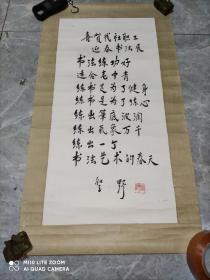 喜贺我社职工
迎春书法展
书法练功好
适合老中青
练书是为了健身
练书是为了练心
练出笔底波澜
练出气象万千
练出一个
书法艺术的春天
野